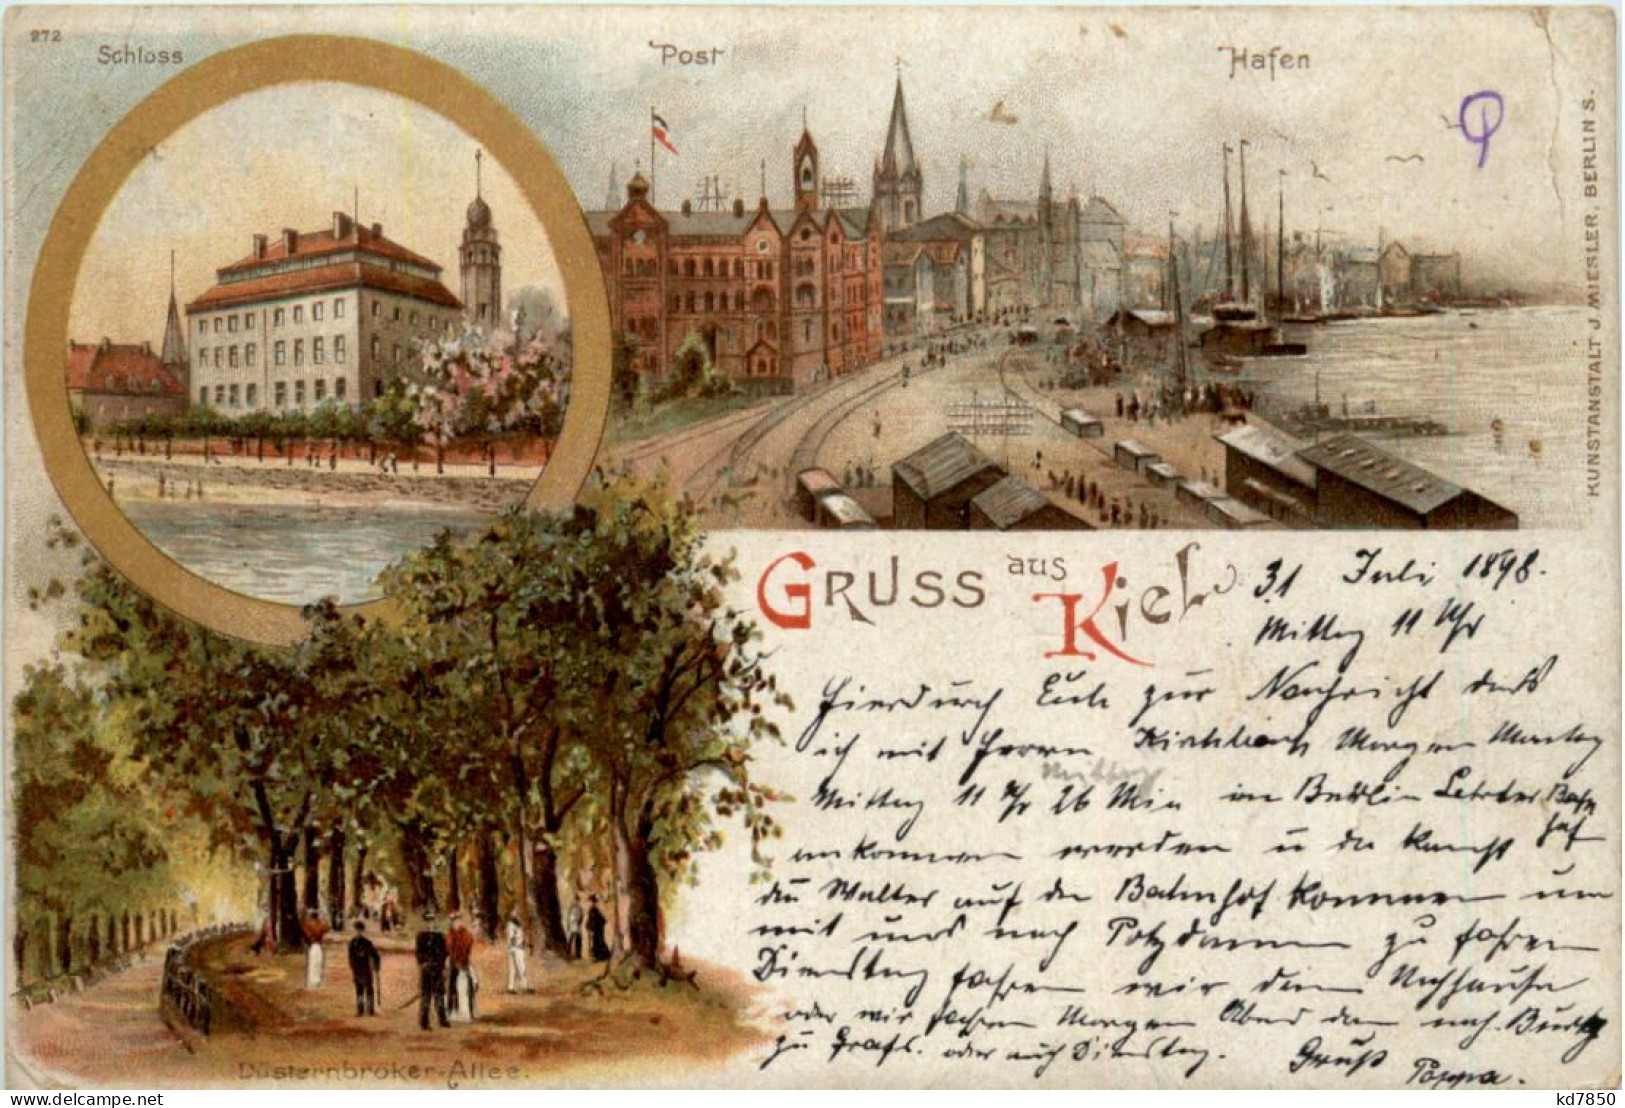 272
Schloss
Post
Hafen
KUNSTANSTALT J. MIESLER, BERLIN S.
GRUSS aus Kiel
31 Juli 1898.
Mittag 11 Uhr
Hierdurch Euch zur Nachricht daß
ich mit Herrn Morgen Montag
Mittag 11 Uhr 26 Min in Berlin Lehrter Bahn
hof
ankommen werden u da kannst
du Walter auf den Bahnhof kommen um
mit uns nach Potzdamm zu fahren
Dienstag fahren wir dann
oder wir fahren Morgen Abend dann nach
zu oder auch Dienstag.
Gruß
Pappa.
Düsternbroker-Allee.
delcampe.net
kd7850